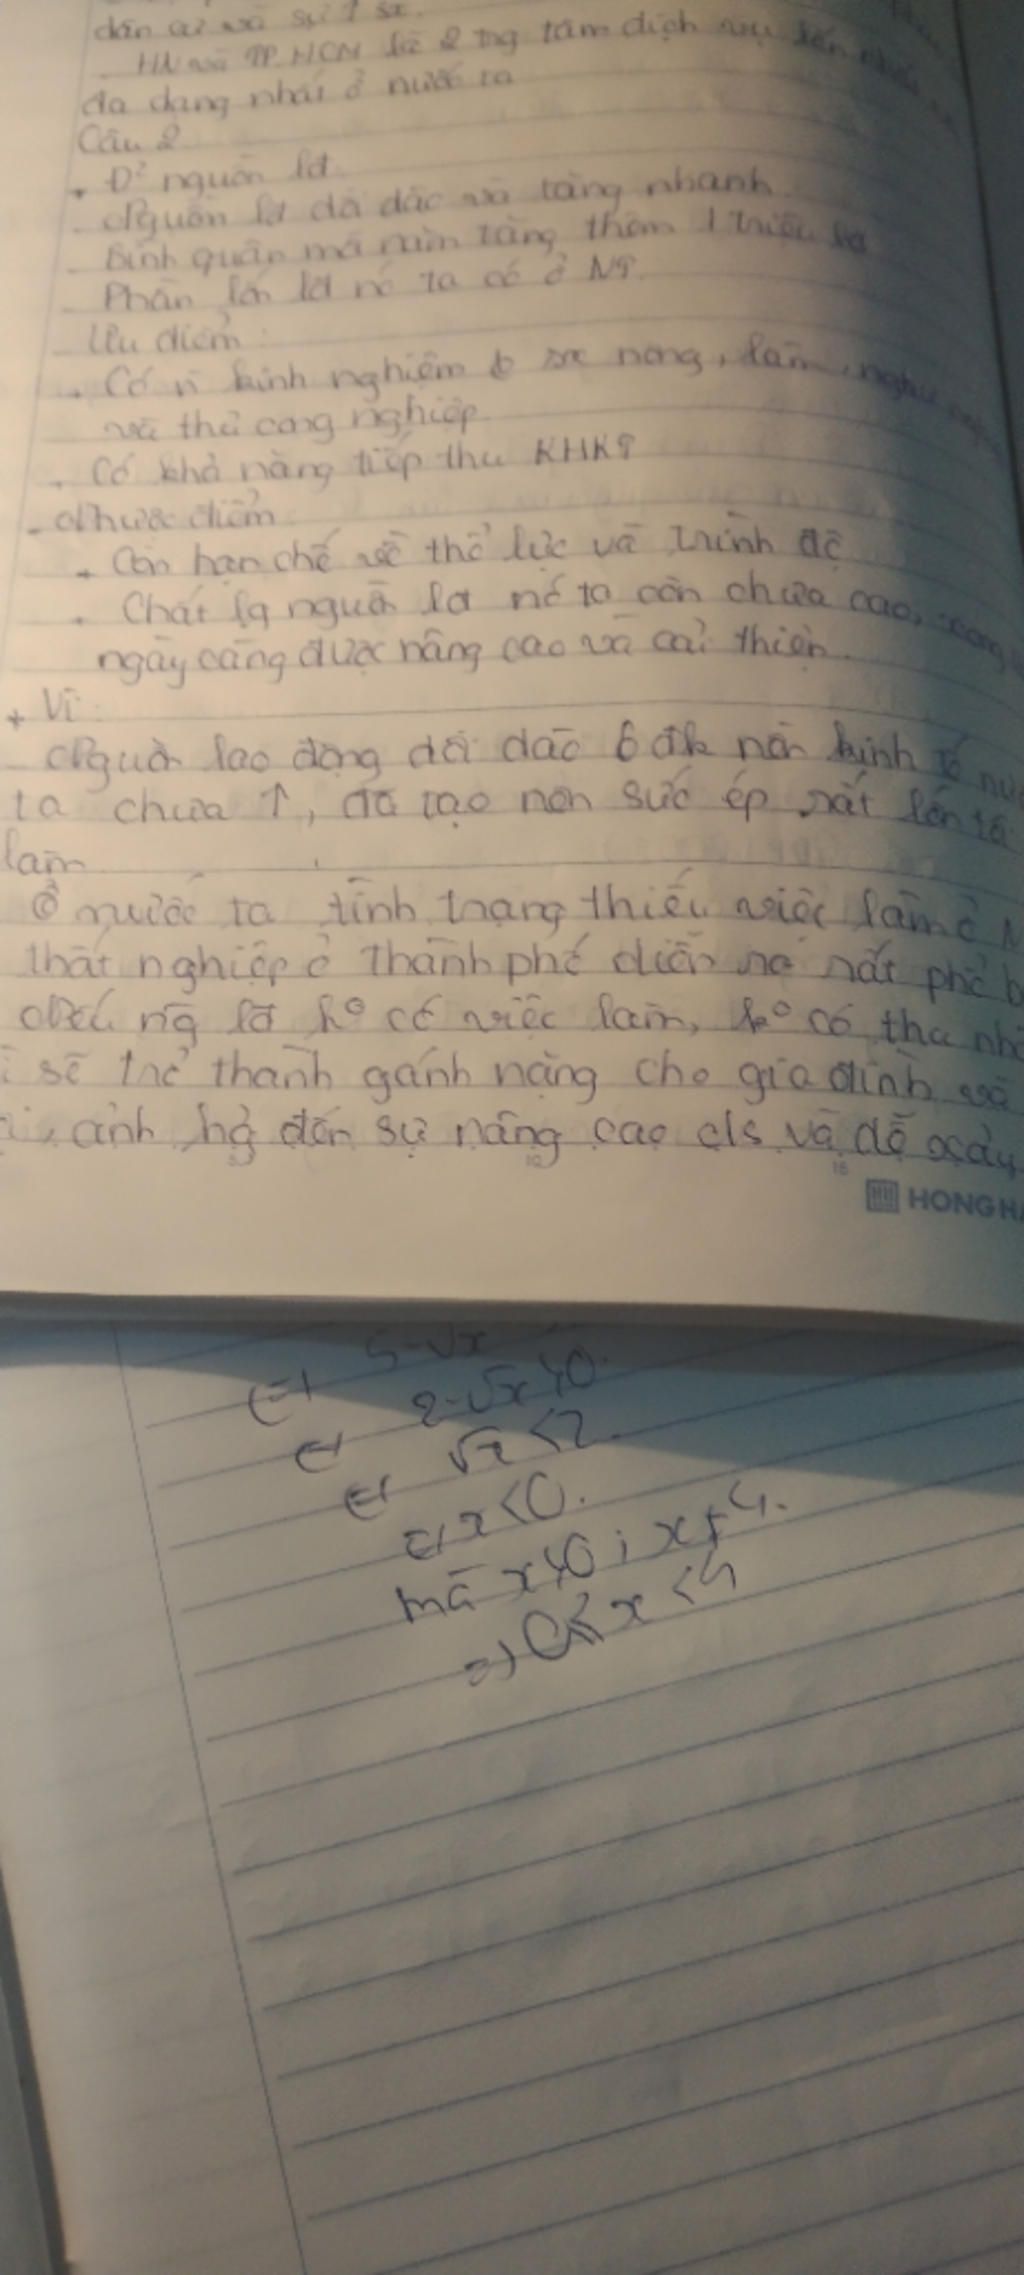 dân cư và sự ↑ sx.
HN và TP. HCM là 2 tng tâm dịch vụ lớn nhất
đa dạng nhất ở nước ta
Câu 2
+ Đ² nguồn lđ
- Nguồn lđ dồi dào và tăng nhanh
- Bình quân mỗi năm tăng thêm 1 triệu lđ
- Phần lớn lđ nc ta có ở NT.
- Ưu điểm:
+ Có n kinh nghiệm sx nông, lâm, ngư nghiệp
và thủ công nghiệp
+ Có khả năng tiếp thu KHKT
- Nhược điểm
+ Còn hạn chế về thể lực và trình độ
+ Chất lg nguồn lđ nc ta còn chưa cao, song
ngày càng được nâng cao và cải thiện.
+ Vì:
- Nguồn lao động dồi dào đk nền kinh tế nước
ta chưa ↑, đã tạo nên sức ép rất lớn tới
làm
Ở nước ta tình trạng thiếu việc làm ở N
thất nghiệp ở thành phố diễn ra rất phổ b
Nếu ng lđ k° có việc làm, k° có thu nhậ
sẽ trở thành gánh nặng cho gia đình và
ảnh hg đến sự nâng cao cls và dễ xảy
10 15
HONG HA
5-√x
<=> 2-√x>0.
<=> √x<2.
<=> x<0.
<=> mà x≥0; x≠4.
=> 0≤x<4